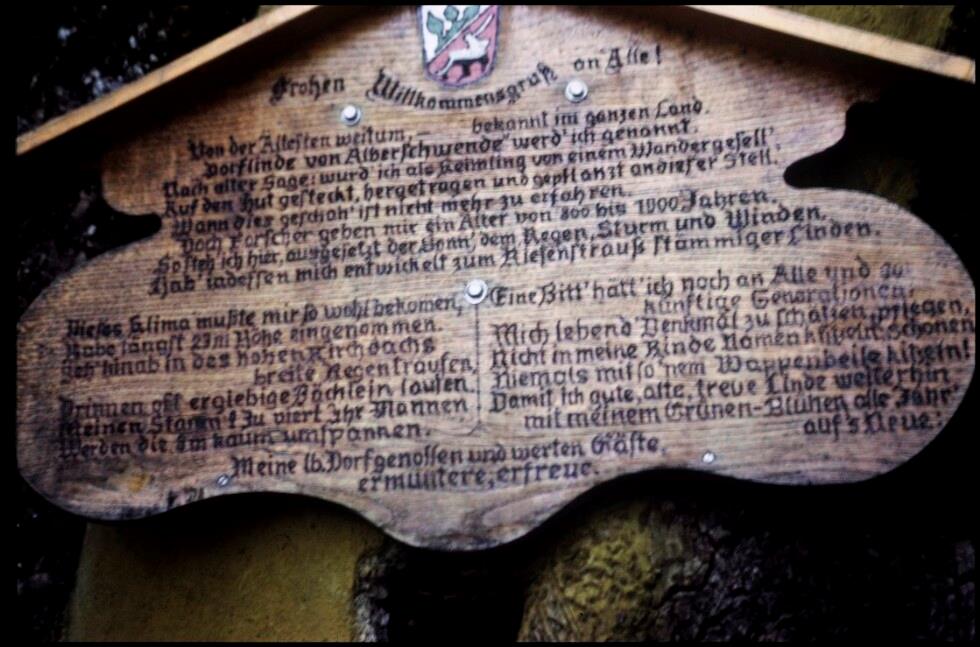 Frohen Willkommensgruß an Alle!
Von der Ältesten weitum,- bekannt im ganzen Land.
"Dorflinde von Alberschwende" werd' ich genannt.
Nach alter Sage: wurd' ich als Keimling von einem Wandergesell',
Auf den Hut gesteckt, hergetragen und gepflanzt an dieser Stell.
Wann dies geschah' ist nicht mehr zu erfahren.
Doch Forscher geben mir ein Alter von 800 bis 1000 Jahren.
So steh ich hier, ausgesetzt der Sonn', dem Regen, Sturm und Winden,
Hab' indessen mich entwickelt zum Riesenstrauß stämmiger Linden.
Dieses Klima mußte mir so wohl bekomen,
Habe längst 23 m Höhe eingenommen.
Seh' hinab in des hohen Kirchdachs
breite Regentraufen,
Drinnen oft ergiebige Bächlein laufen.
Meinen Stamm! Zu viert, Ihr Mannen
Werden die 8m kaum umspannen.
Eine Bitt' hätt' ich noch an Alle und zu
künftige Generationen:
Mich lebend' Denkmal zu schätzen, pflegen,
schonen
Nicht in meine Rinde Namen
Niemals mit so'nem Wappenbeile kitzeln!
Damit ich gute, alte, treue Linde weiterhin
mit meinem Grünen-Blühen alle Jahr'
auf's Neue:
Meine lb. Dorfgenossen und werten Gäste,
ermuntere, erfreue.